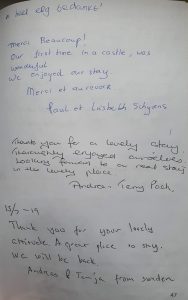 heel erg bedankt!
Merci Beaucoup!
Our first time in a castle, was
wonderful
We enjoyed our stay
Merci et au revoir
Paul et Liesbeth
Thank you for a lovely stay,
Thoroughly enjoyed ourselves.
Looking forward to our next stay
in this lovely place
Andrea Terry
Thank you for your lovely
attitude. A great place to stay.
We will be back
Andreas & Tanja from Sweden
47